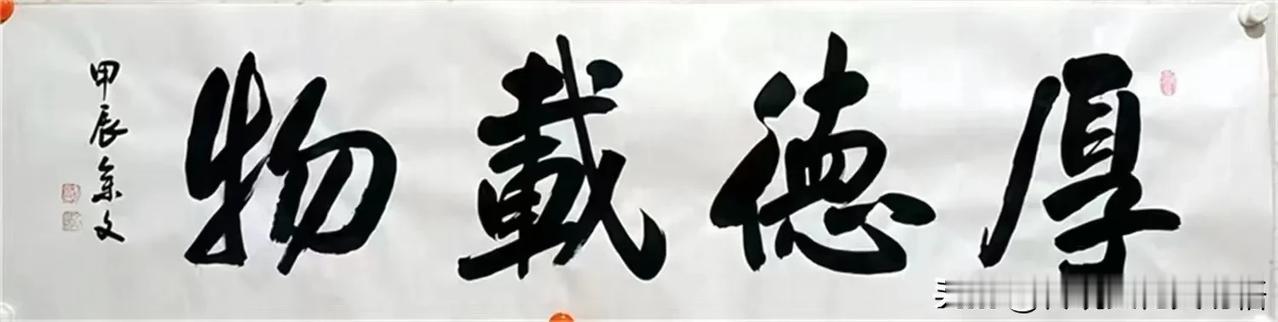 厚德載物
甲辰 文